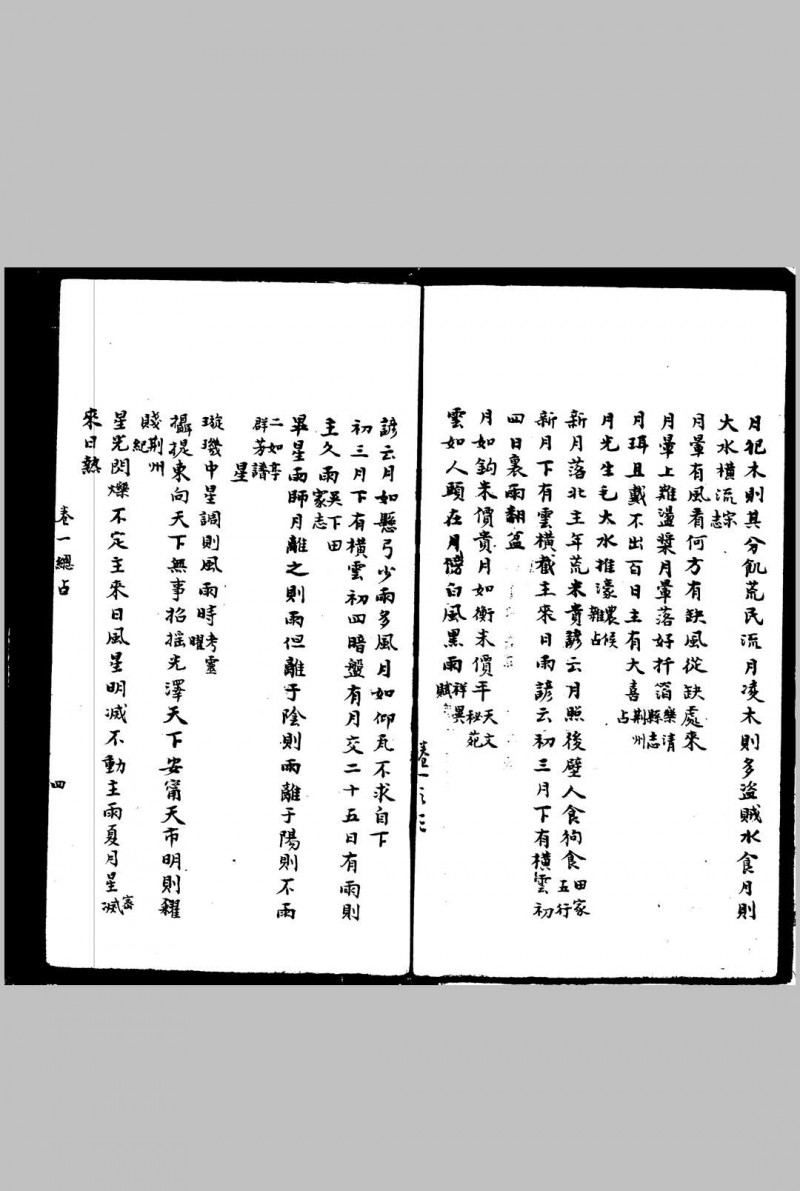 月犯木則其分飢荒民流月凌木則多盜賊水食月則
大水橫流宗志
月暈有風看何方有缺風從缺處來
月暈上難盪槳月暈落好扦箔樂清縣志
月珥且戴不出百日主有大喜荆州占
月光生毛大水推濠農候雜占
新月落北主年荒米貴諺云月照後壁人食狗食田家五行
新月下有雲橫截主來日雨諺云初三月下有橫雲初
四日裏雨翻盆
月如鈎米價貴月如衡米價平天文秘苑
雲如人頭在月傍白風黑雨祥異賦
諺云月如懸弓少雨多風月如仰瓦不求自下
初三月下有橫雲初四暗盤有月交二十五日有雨則
主久雨吴下田家志
畢星雨師月離之則雨但離于陰則雨離于陽則不雨
二如亭群芳譜
星
璇璣中星調則風雨時考靈曜
攝提東向天下無事招摇光澤天下安甯天市明則糴
賤荆州紀
星光閃爍不定主來日風星明滅不動主雨夏月星密
來日熱
卷一總占
四